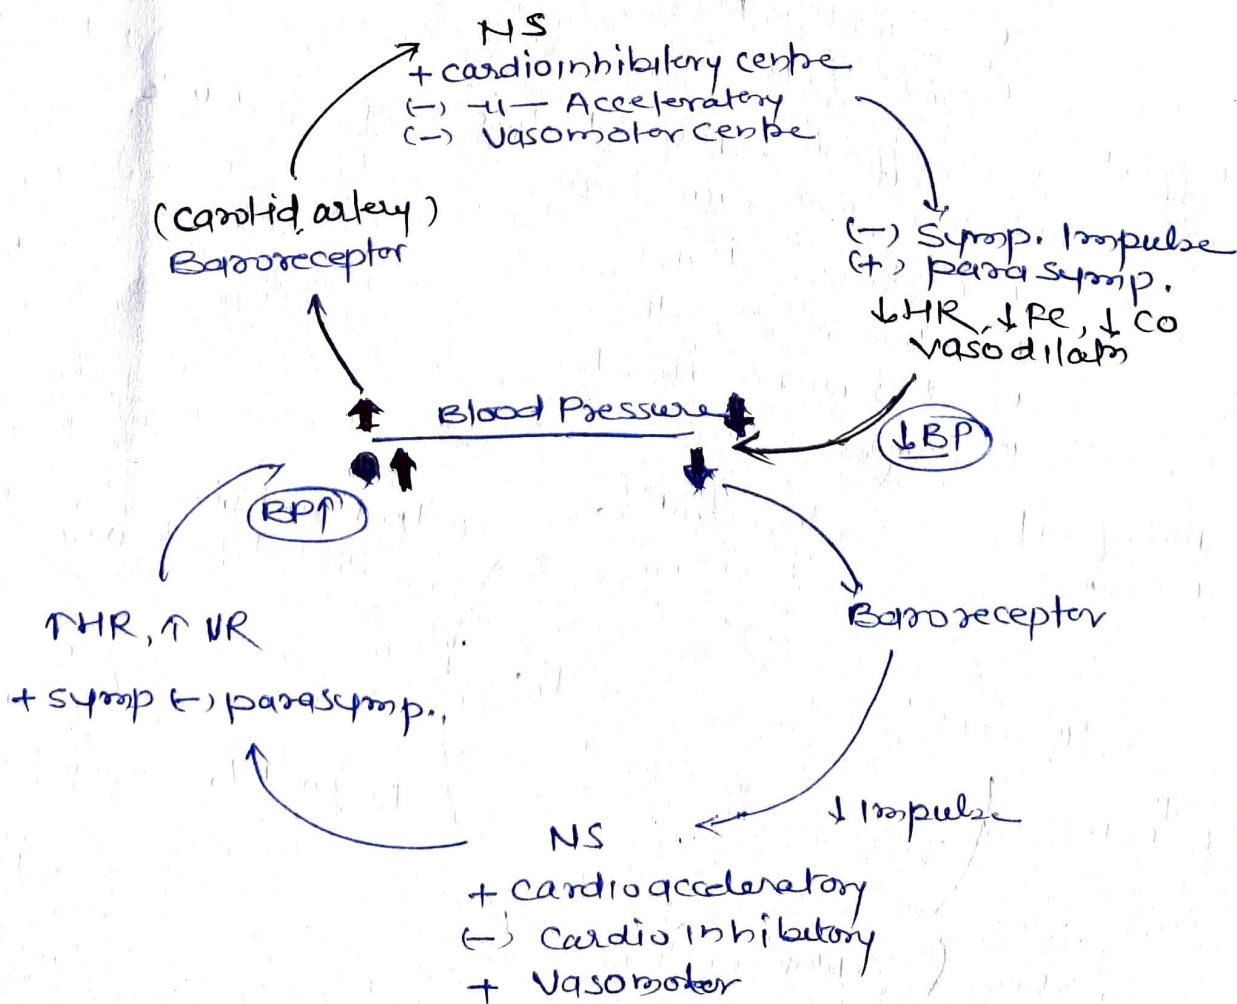 NS
+ cardioinhibitory centre
(-) -11- Acceleratory
(-) Vasomotor centre
(carotid artery)
Baroreceptor
(-) Symp. Impulse
(+) para symp.
↓HR, ↓ FC, ↓ CO
vasodilatn
Blood Pressure
↓BP
BP↑
↑HR, ↑ VR
+ symp (-) parasymp.
Baroreceptor
↓ Impulse
NS
+ cardioacceleratory
(-) cardio inhibitory
+ Vasomotor